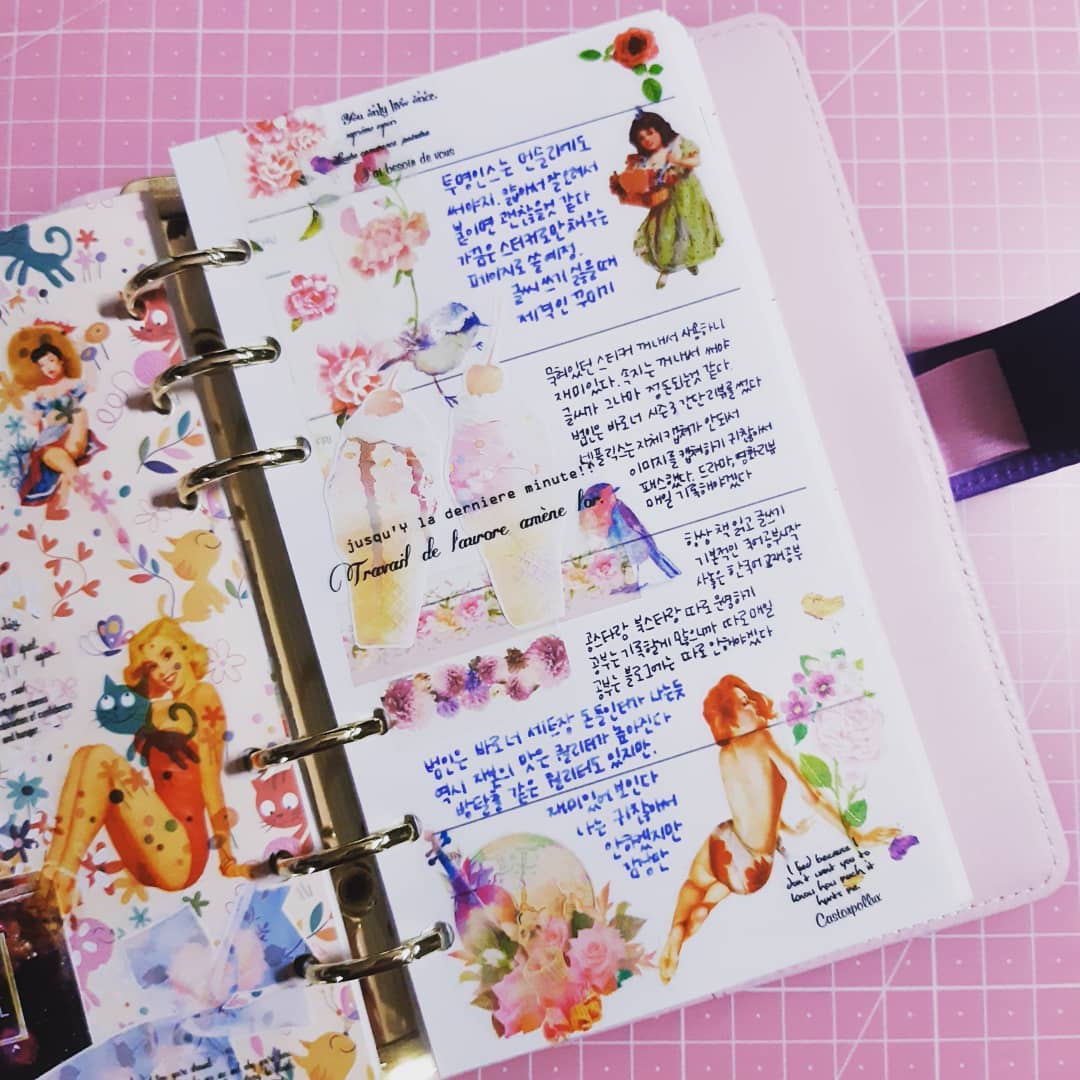 You only live once.
J'ai besoin de vous
투명인스는 먼슬리에도
써야지. 얇아서 잘 오려서
붙이면 괜찮을것 같다
가끔은 스티커로만 채우는
페이지로 쓸 예정.
글씨 쓰기 싫을때
제격인 꾸미기
묵혀있던 스티커 꺼내서 사용하니
재미있다. 속지는 꺼내서 써야
글씨가 그나마 정돈되는것 같다.
범인은 바로너 시즌3 간단리뷰를 썼다
넷플릭스는 자체 캡쳐가 안돼서
이미지를 캡쳐하기 귀찮아서
패스했다. 드라마, 영화리뷰
매일 기록해야겠다
jusqu'Y la derniere minute!
Travail de l'aurore amène l'or.
항상 책 읽고 글쓰기
기본적인 국어공부시작
사놓은 한국어 교재공부
공스타랑 북스타랑 따로 운영하기
공부는 기록할게 많으니까 따로 매일
공부는 블로그에는 따로 안해야겠다
범인은 바로너 세트장 돈들인티가 나는듯
역시 자본의 맛은 퀄리티가 높아진다
방탈출 같은 퀄리티도 있지만,
재미있어 보인다
나는 귀찮아서
안하겠지만
I fled because I
don't want you to
know how much it
hurts me.
Castorpollux